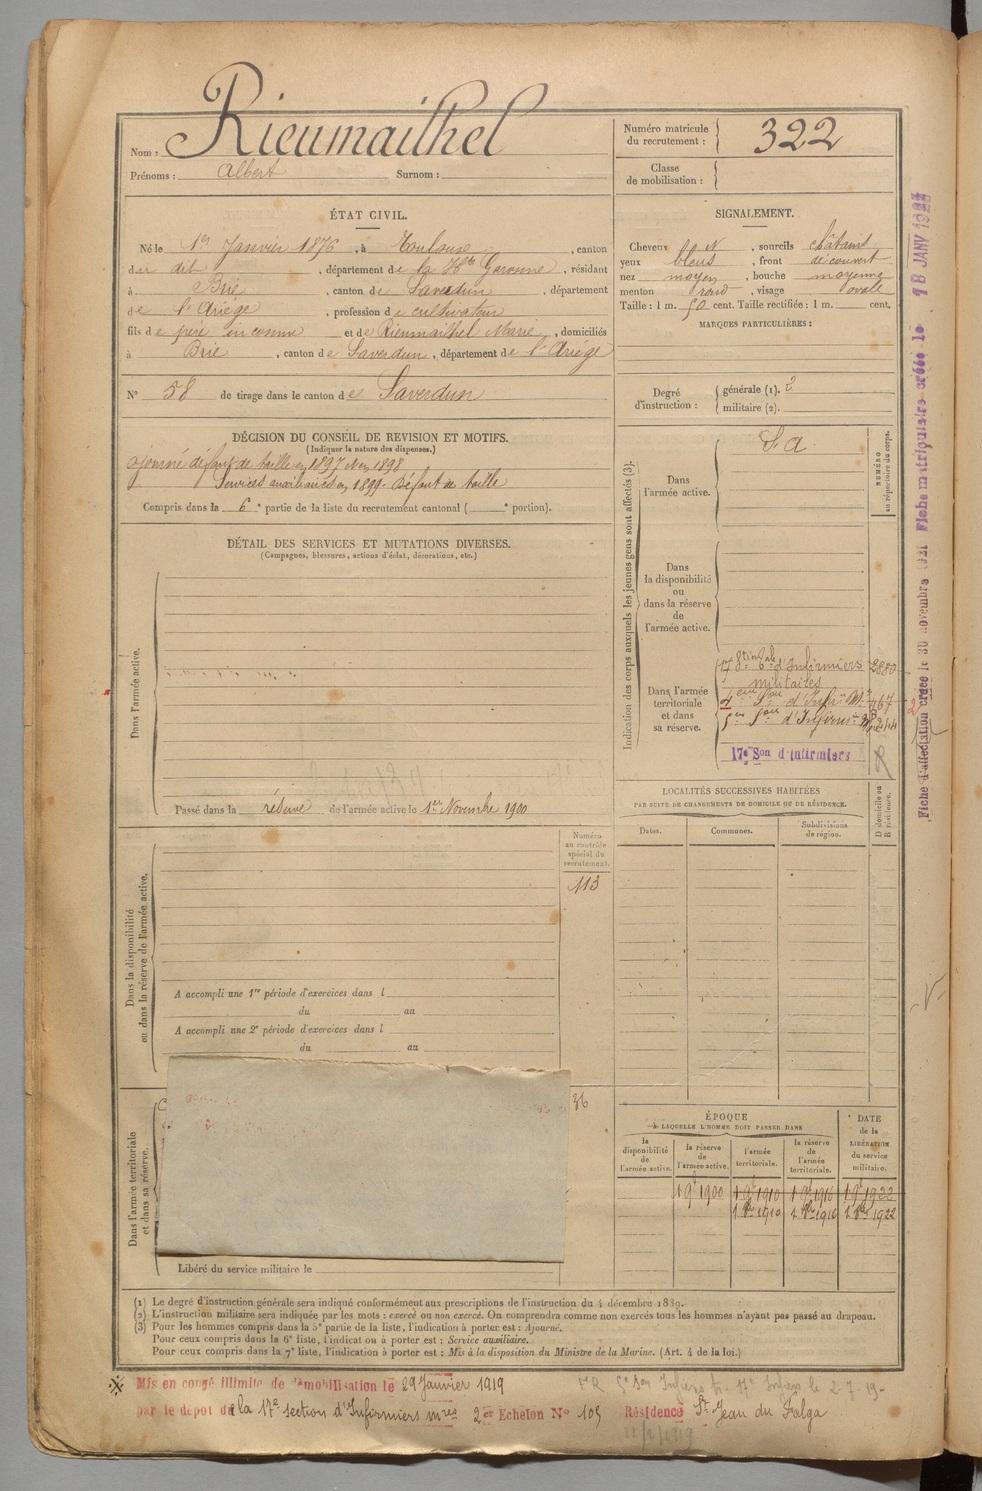 Nom : Rieumailhel
Prénoms : Albert Surnom :
Numéro matricule du recrutement : 322
Classe de mobilisation :
ÉTAT CIVIL.
Né le 1er Janvier 1876, à Toulouse, canton
dudit, département de la Hte Garonne, résidant
à Brie, canton de Saverdun, département
de l'Ariège, profession de cultivateur
fils de père inconnu et de Rieumailhel Marie, domiciliés
à Brie, canton de Saverdun, département de l'Ariège
N° 58 de tirage dans le canton de Saverdun
SIGNALEMENT.
Cheveux N, sourcils châtains
yeux bleus, front découvert
nez moyen, bouche moyenne
menton rond, visage ovale
Taille : 1 m. 50 cent. Taille rectifiée : 1 m. cent.
MARQUES PARTICULIÈRES :
Degré d'instruction : générale (1). 2
militaire (2).
DÉCISION DU CONSEIL DE REVISION ET MOTIFS.
(Indiquer la nature des dispenses.)
ajourné défaut de taille en 1897 et en 1898
Services auxiliaires en 1899. Défaut de taille
Compris dans la 6e partie de la liste du recrutement cantonal ( e portion).
DÉTAIL DES SERVICES ET MUTATIONS DIVERSES.
(Campagnes, blessures, actions d'éclat, décorations, etc.)
Dans l'armée active.
Passé dans la réserve de l'armée active le 1er Novembre 1900
Indication des corps auxquels les jeunes gens sont affectés (3).
NUMÉRO au répertoire du corps.
Dans l'armée active.
S. A.
Dans la disponibilité ou dans la réserve de l'armée active.
Dans l'armée territoriale et dans sa réserve.
d'Infirmiers 2880
militaires
167
244
17e Son d'infirmiers
LOCALITÉS SUCCESSIVES HABITÉES
PAR SUITE DE CHANGEMENTS DE DOMICILE OU DE RÉSIDENCE.
D domicile ou R résidence.
Dates. Communes. Subdivisions de région.
Numéro au contrôle spécial du recrutement.
113
Dans la disponibilité ou dans la réserve de l'armée active.
A accompli une 1re période d'exercices dans l
du au
A accompli une 2e période d'exercices dans l
du au
36
Dans l'armée territoriale et dans sa réserve.
Libéré du service militaire le
ÉPOQUE
À LAQUELLE L'HOMME DOIT PASSER DANS
DATE de la LIBÉRATION du service militaire.
la disponibilité de l'armée active. la réserve de l'armée active. l'armée territoriale. la réserve de l'armée territoriale.
1900 1910 1916 1922
1910 1916 1922
(1) Le degré d'instruction générale sera indiqué conformément aux prescriptions de l'instruction du 4 décembre 1889.
(2) L'instruction militaire sera indiquée par les mots : exercé ou non exercé. On comprendra comme non exercés tous les hommes n'ayant pas passé au drapeau.
(3) Pour les hommes compris dans la 5e partie de la liste, l'indication à porter est : Ajourné.
Pour ceux compris dans la 6e liste, l'indication à porter est : Service auxiliaire.
Pour ceux compris dans la 7e liste, l'indication à porter est : Mis à la disposition du Ministre de la Marine. (Art. 4 de la loi.)
Mis en congé illimité de démobilisation le 29 Janvier 1919
par le dépôt de la 17e section d'Infirmiers mres 2er Echelon N° 105 Résidence St Jean du Falga
Fiche matriculaire créée le 18 JANV
Fiche d'affectation créée le 30 novembre